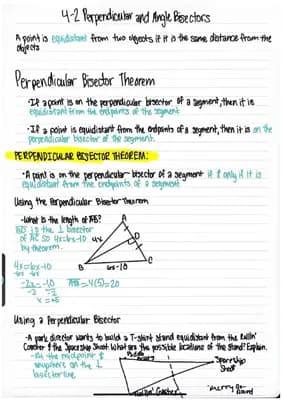 4-2 Perpendicular and Angle Bisectors
A point is equidistant from two objects if it is the same distance from the
objects
Perpendicular Bisector Theorem
-If a point is on the perpendicular bisector of a segment, then it is
equidistant from the endpoints of the segment
-If a point is equidistant from the endpoints of a segment, then it is on the
perpendicular bisector of the segment.
PERPENDICULAR BISECTOR THEOREM:
-A point is on the perpendicular bisector of a segment if & only if it is
equidistant from the endpoints of a segment
Using the Perpendicular Bisector Theorem
-What is the length of AB?
BD is the ⊥ bisector
of AC so 4x=6x-10
by theorem.
A
4x
D
B
C
6x-10
4x=6x-10
-6x -6x
-2x=-10
-2 -2
x=5
AB=4(5)=20
Using a Perpendicular Bisector
-A park director wants to build a T-shirt stand equidistant from the Rollin'
Coaster & the Spaceship Shoot. What are the possible locations of the stand? Explain.
-At the midpoint &
anywhere on the ⊥
bisector line
Paddle
Spaceship
Shoot
Rollin' Coaster
Merry Go
Round